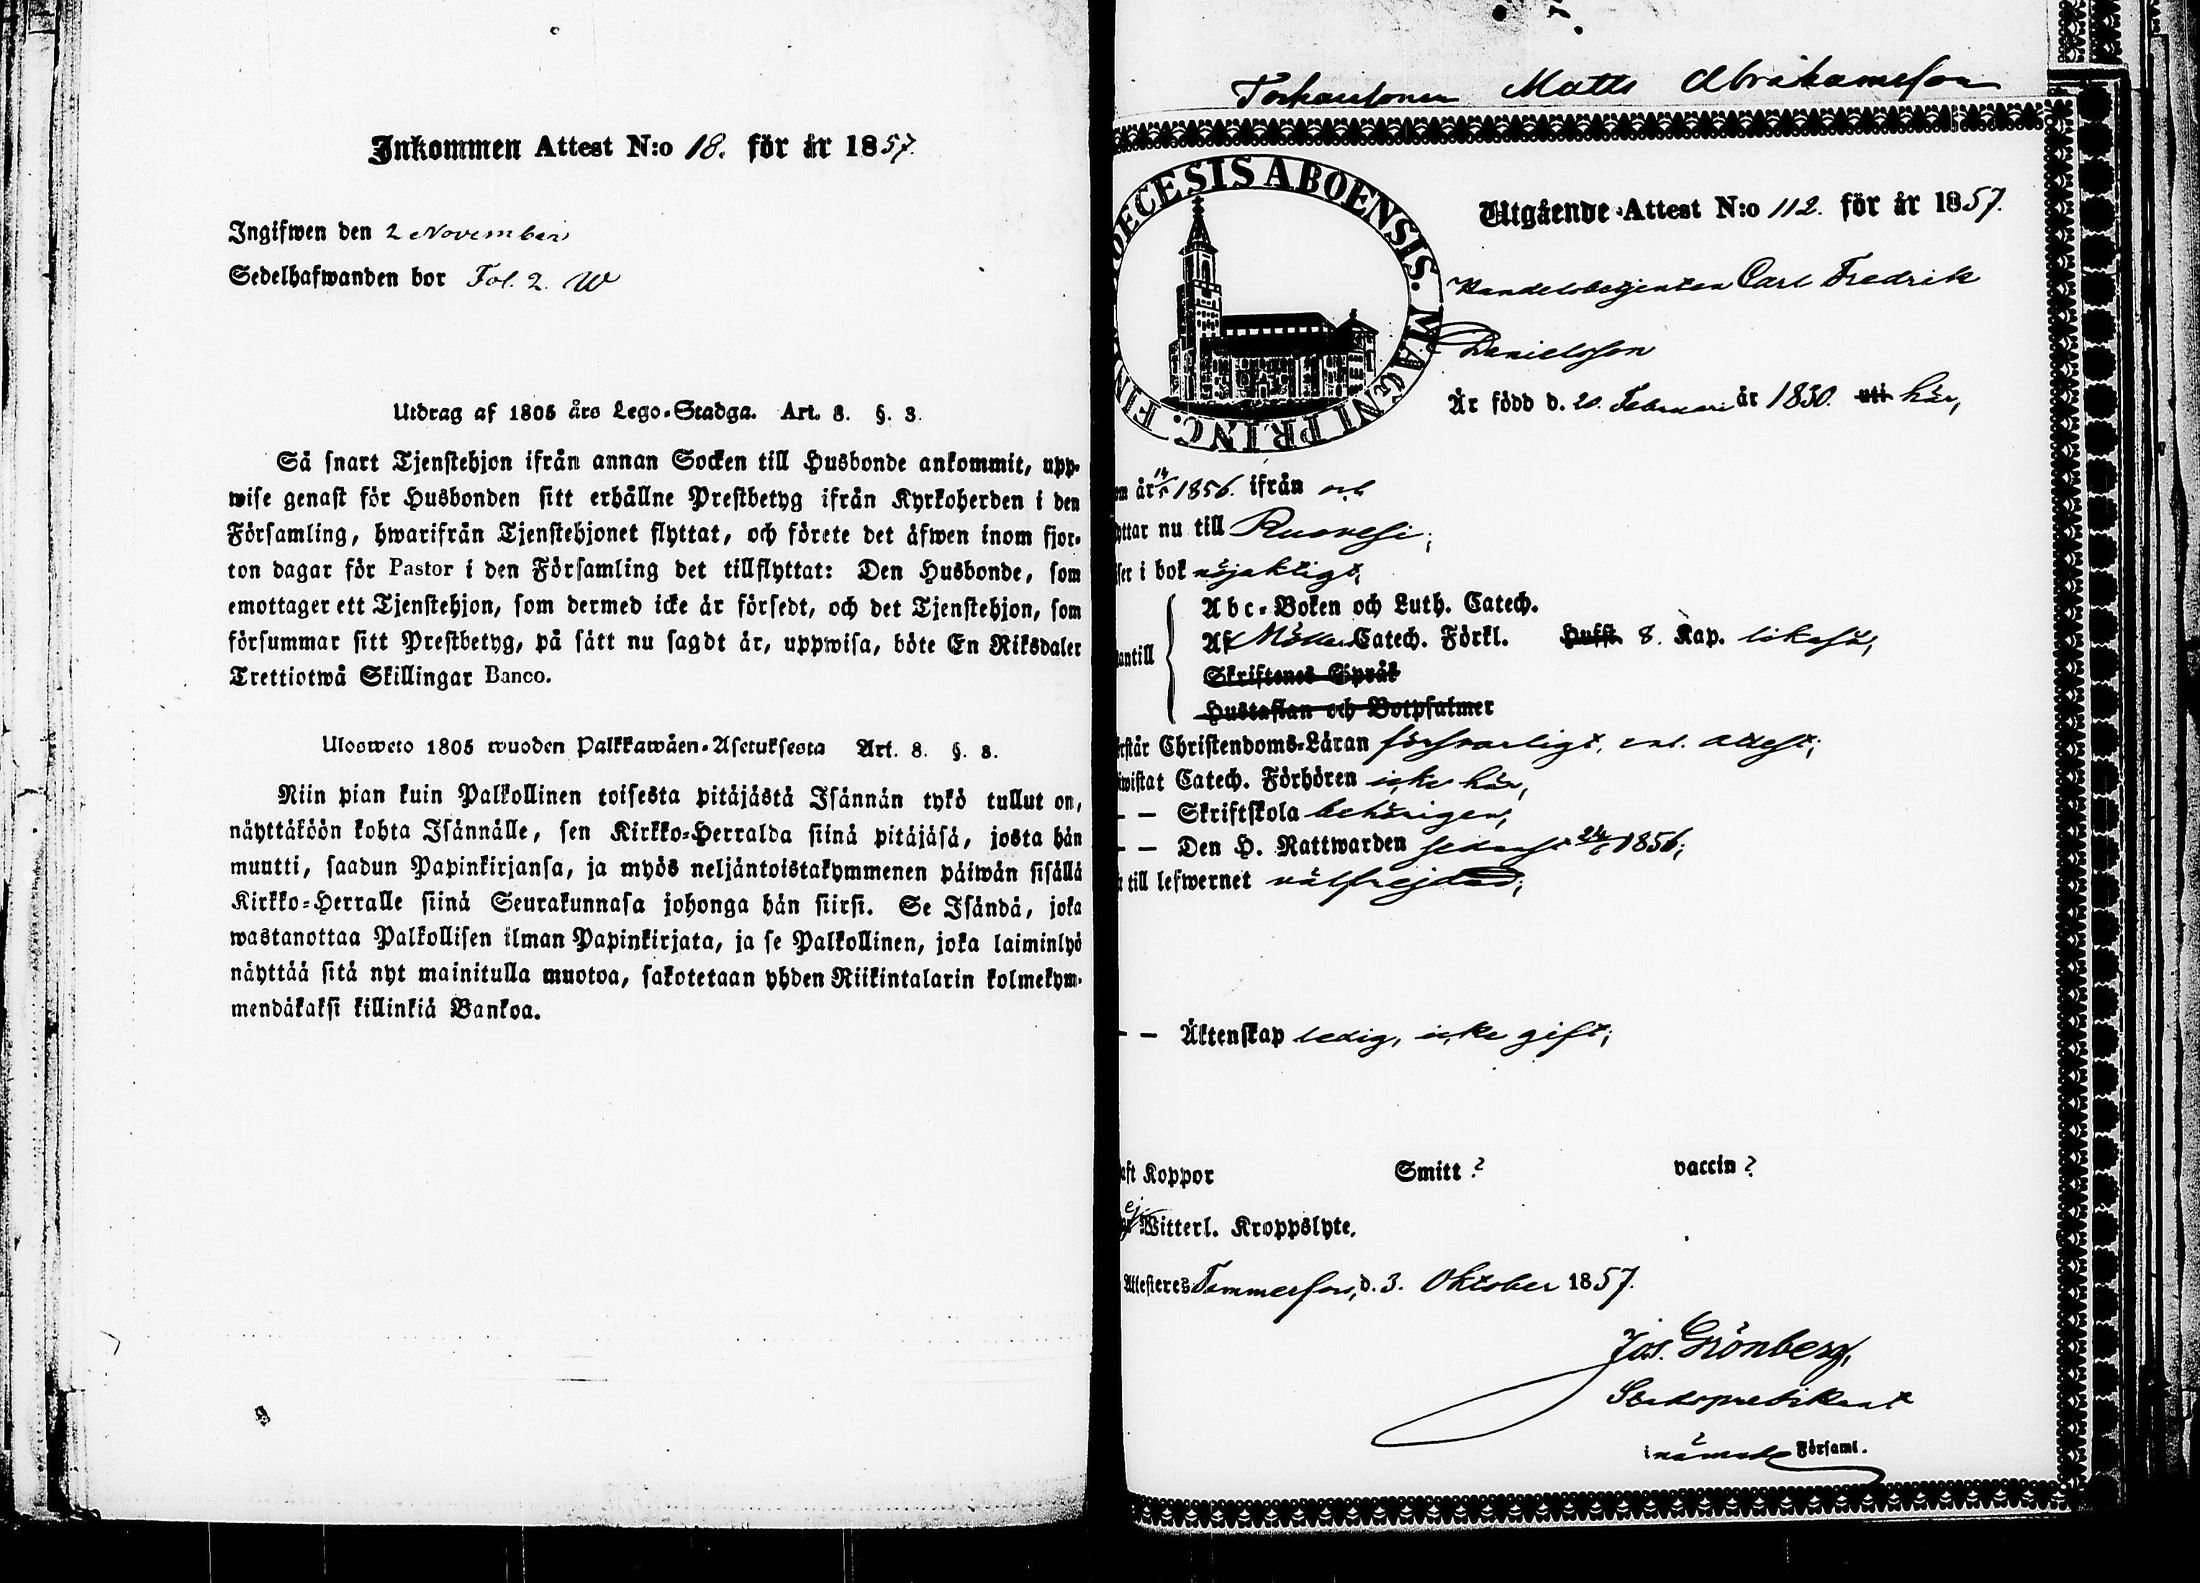 Inkommen Attest N:o 18. för år 1857.
Ingifwen den 2 November
Sedelhafwanden bor Fol. 2. W
Utdrag af 1805 års Lego-Stadga. Art. 8. §. 3.
Så snart Tjenstehjon ifrån annan Socken till Husbonde ankommit, upp-
wise genast för Husbonden sitt erhållne Prestbetyg ifrån Kyrkoherden i den
Församling, hwarifrån Tjenstehjonet flyttat, och förete det äfwen inom fjor-
ton dagar för Pastor i den Församling det tillflyttat: Den Husbonde, som
emottager ett Tjenstehjon, som dermed icke är försedt, och det Tjenstehjon, som
försummar sitt Prestbetyg, på sätt nu sagdt är, uppwisa, böte En Riksdaler
Trettiotwå Skillingar Banco.
Ulosweto 1805 wuoden Palkkawäen-Asetuksesta Art. 8. §. 3.
Niin pian kuin Palkollinen toisesta pitäjästä Isännän tykö tullut on,
näyttäköön kohta Isännälle, sen Kirkko-Herralda siinä pitäjäsä, josta hän
muutti, saadun Papinkirjansa, ja myös neljäntoistakymmenen päiwän sisällä
Kirkko-Herralle siinä Seurakunnasa johonga hän siirsi. Se Isändä, joka
wastanottaa Palkollisen ilman Papinkirjata, ja se Palkollinen, joka laiminlyö
näyttää sitä nyt mainitulla muotoa, sakotetaan yhden Riikintalarin kolmekym-
mendäkaksi killinkiä Bankoa.
Matts Abrahamsson
DIOECESIS ABOENSIS. MAGNI PRINC. FIN
Utgående Attest N:o 112. för år 1857.
Handelsbetjenten Carl Fredrik
Danielsson
Är född d. 20. Februari år 1830. uti här,
om år 14/5 1856. ifrån och
yttar nu till Ruovesi;
ser i bok nöjaktigt,
Abc-Boken och Luth. Catech.
antill Af Möll. Catech. Förkl. Husst. 8. Kap. likaså,
Skriftenes Språk
Hustaflan och Botpsalmer
rstår Christendoms-Läran försvarligt, enl. attest;
wistat Catech. Förhören icke här,
— — Skriftskola behörigen,
— — Den H. Nattwarden sednast 24/5 1856;
till lefwernet välfrejdad;
— — Äktenskap ledig, icke gift;
aft Koppor Smitt? vaccin?
ej Witterl. Kroppslyte.
Attesteres Tammerfors, d. 3. Oktober 1857.
Jos. Grönberg,
Stadspredikant
i nämnde Församl.